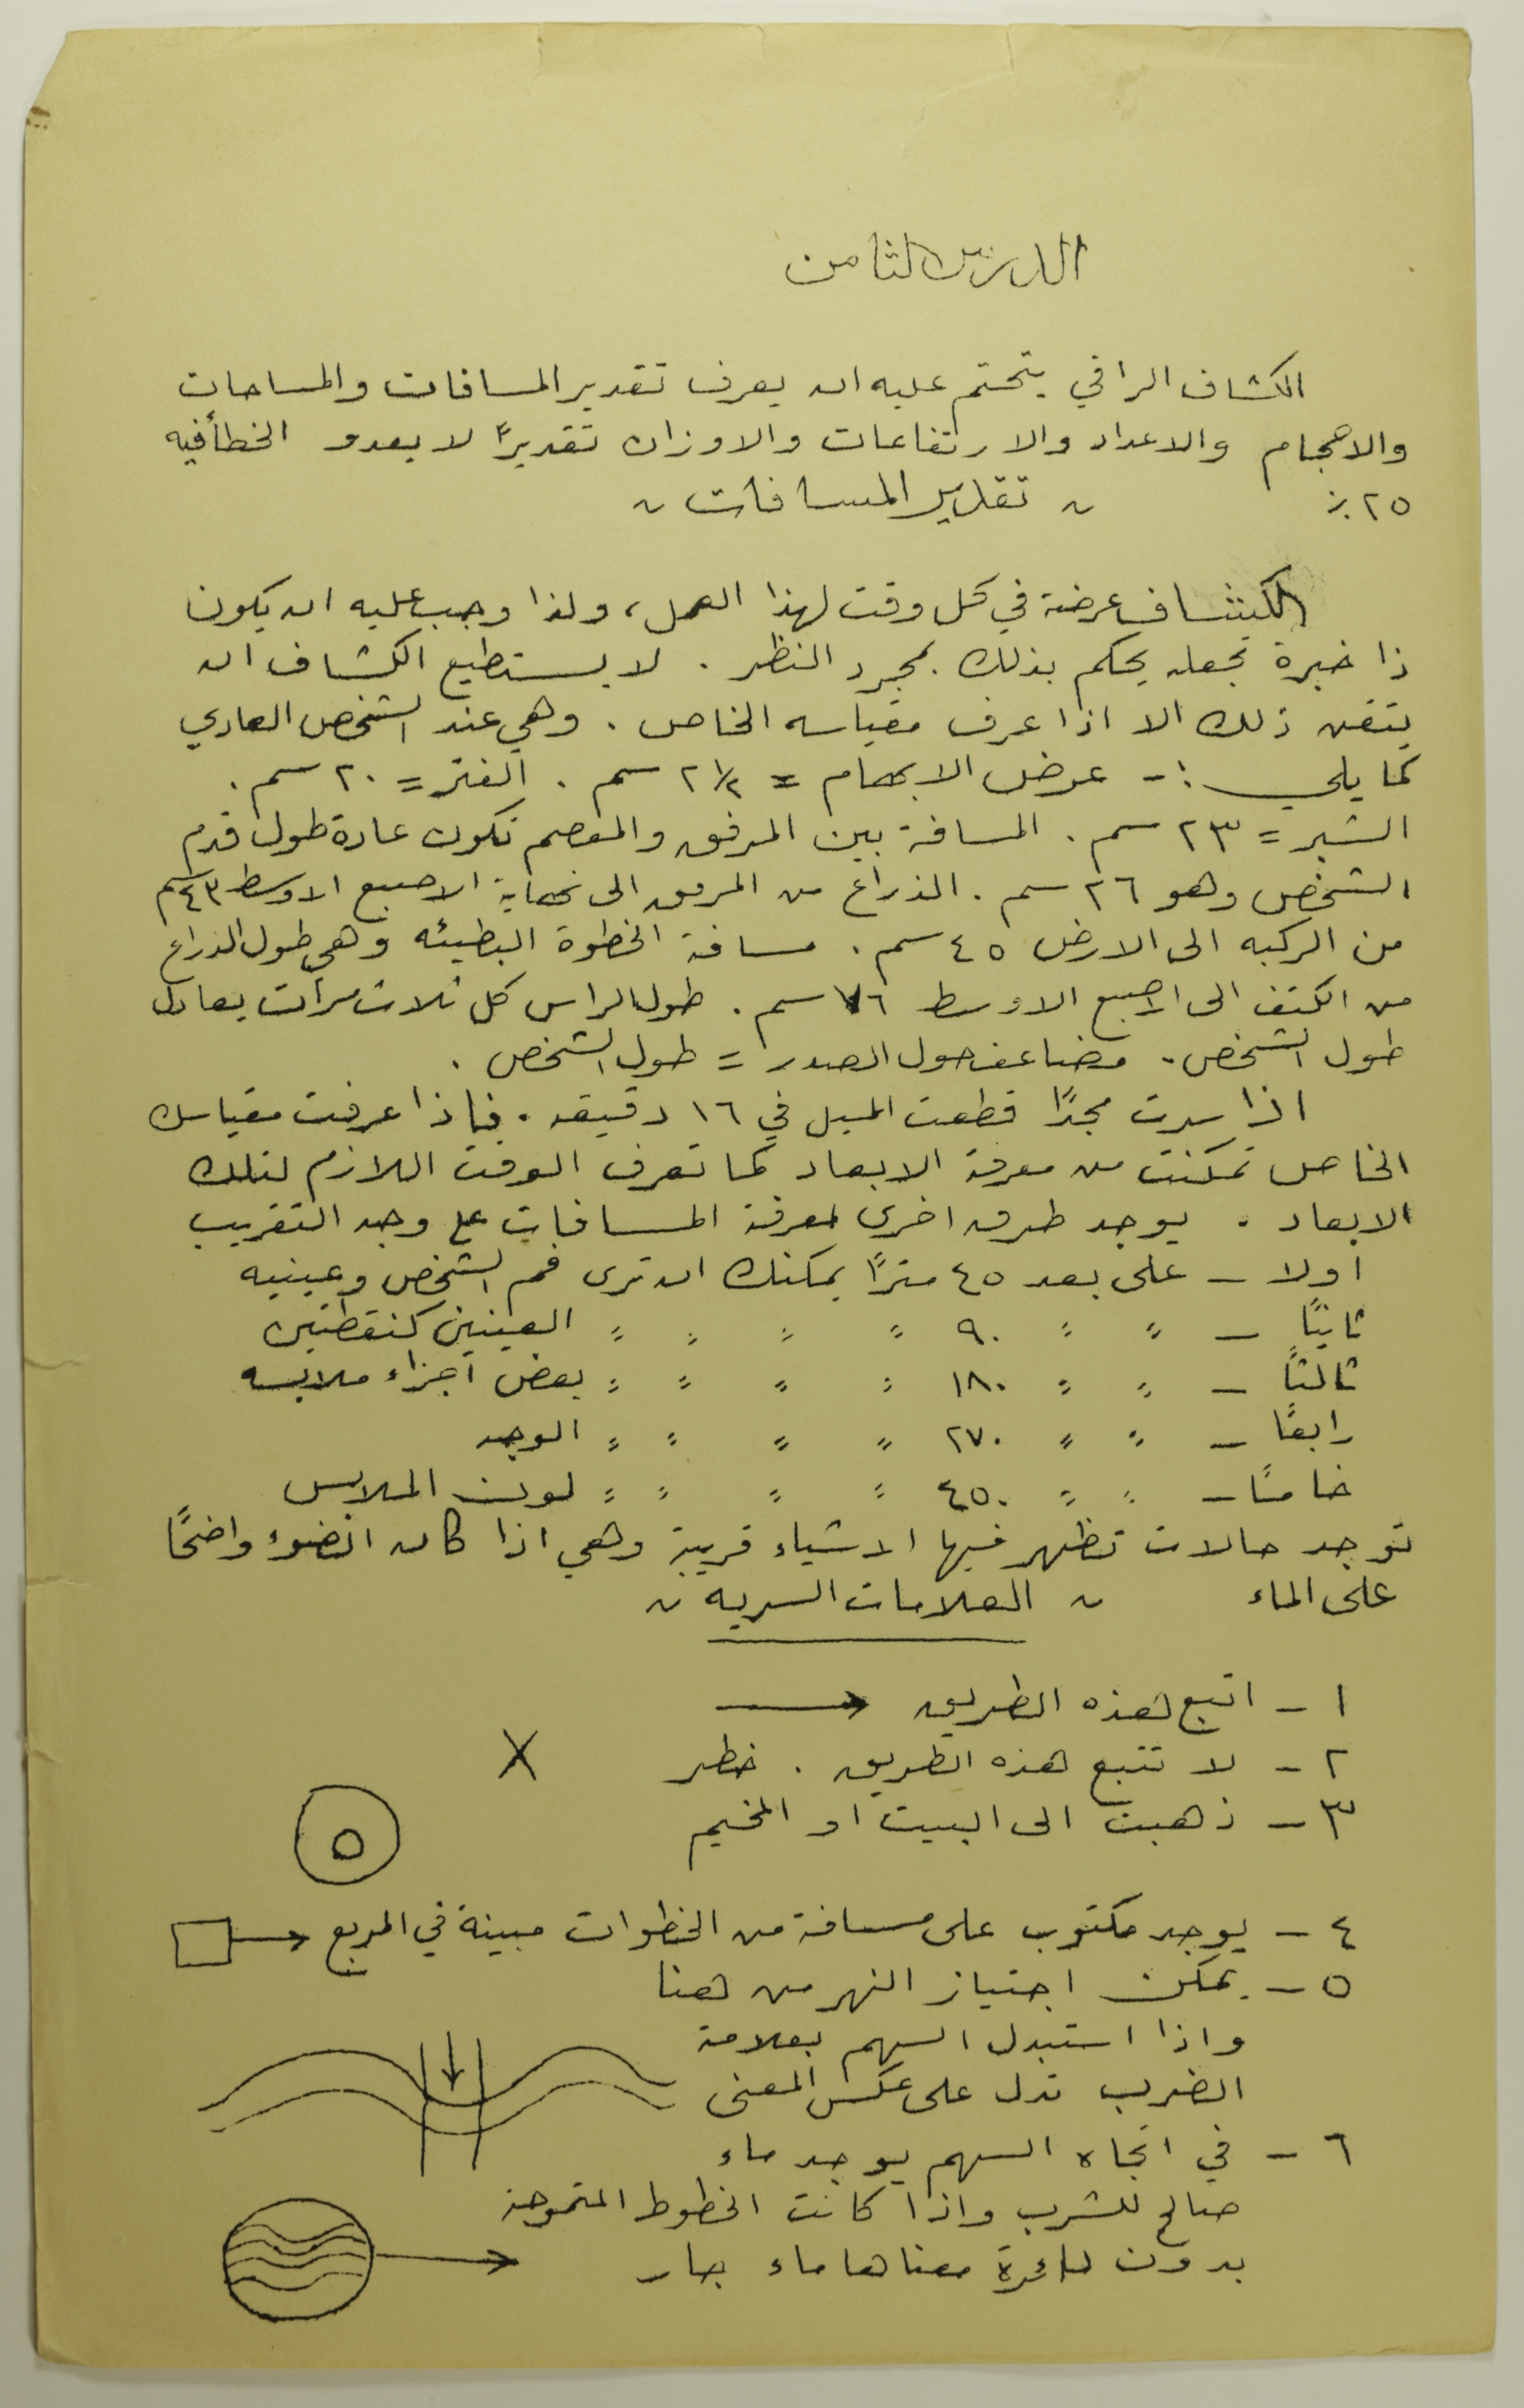 الدرس الثامن
الكشاف الراقي يتحتم عليه ان يعرف تقدير المسافات والمساحات
والاحجام والاعداد والارتفاعات والاوزان تقديرًا لا يعدو الخطأ فيه
٢٥ ٪ ~ تقدير المسافات ~
الكشاف عرضة في كل وقت لهذا العمل، ولذا وجب عليه ان يكون
ذا خبرة تجعله يحكم بذلك بمجرد النظر . لا يستطيع الكشاف ان
يتقن ذلك الا اذا عرف مقياسه الخاص . وهي عند الشخص العادي
كما يلي :- عرض الابهام = ٢½ سم . الفتر = ٢٠ سم .
الشبر = ٢٣ سم . المسافة بين المرفق والمعصم تكون عادة طول قدم
الشخص وهو ٢٦ سم . الذراع من المرفق الى نهاية الاصبع الاوسط ٤٣ سم
من الركبه الى الارض ٤٥ سم . مسافة الخطوة البطيئه وهي طول الذراع
من الكتف الى الاصبع الاوسط ٧٦ سم . طول الراس كل ثلاث مرات يعادل
طول الشخص . مضاعف حول الصدر = طول الشخص .
اذا سرت مجدًا قطعت الميل في ١٦ دقيقه . فاذا عرفت مقياسك
الخاص تمكنت من معرفة الابعاد كما تعرف الوقت اللازم لتلك
الابعاد . يوجد طرق اخرى لمعرفة المسافات على وجه التقريب
اولا - على بعد ٤٥ مترًا يمكنك ان ترى فم الشخص وعينيه
ثانيًا - " " ٩٠ " " " " العينين كنقطتين
ثالثًا - " " ١٨٠ " " " " بعض اجزاء ملابسه
رابعًا - " " ٢٧٠ " " " " الوجه
خامسًا - " " ٤٥٠ " " " " لون الملابس
توجد حالات تظهر فيها الاشياء قريبة وهي اذا كان الضوء واضحًا
على الماء ~ العلامات السريه ~
١ - اتبع هذه الطريق →
٢ - لا تتبع هذه الطريق . خطر X
٣ - ذهبت الى البيت او المخيم
٤ - يوجد مكتوب على مسافة من الخطوات مبينة في المربع
٥ - يمكن اجتياز النهر من هنا
واذا استبدل السهم بعلامة
الضرب تدل على عكس المعنى
٦ - في اتجاه السهم يوجد ماء
صالح للشرب واذا كانت الخطوط المتموجة
بدون دائرة معناها ماء جار